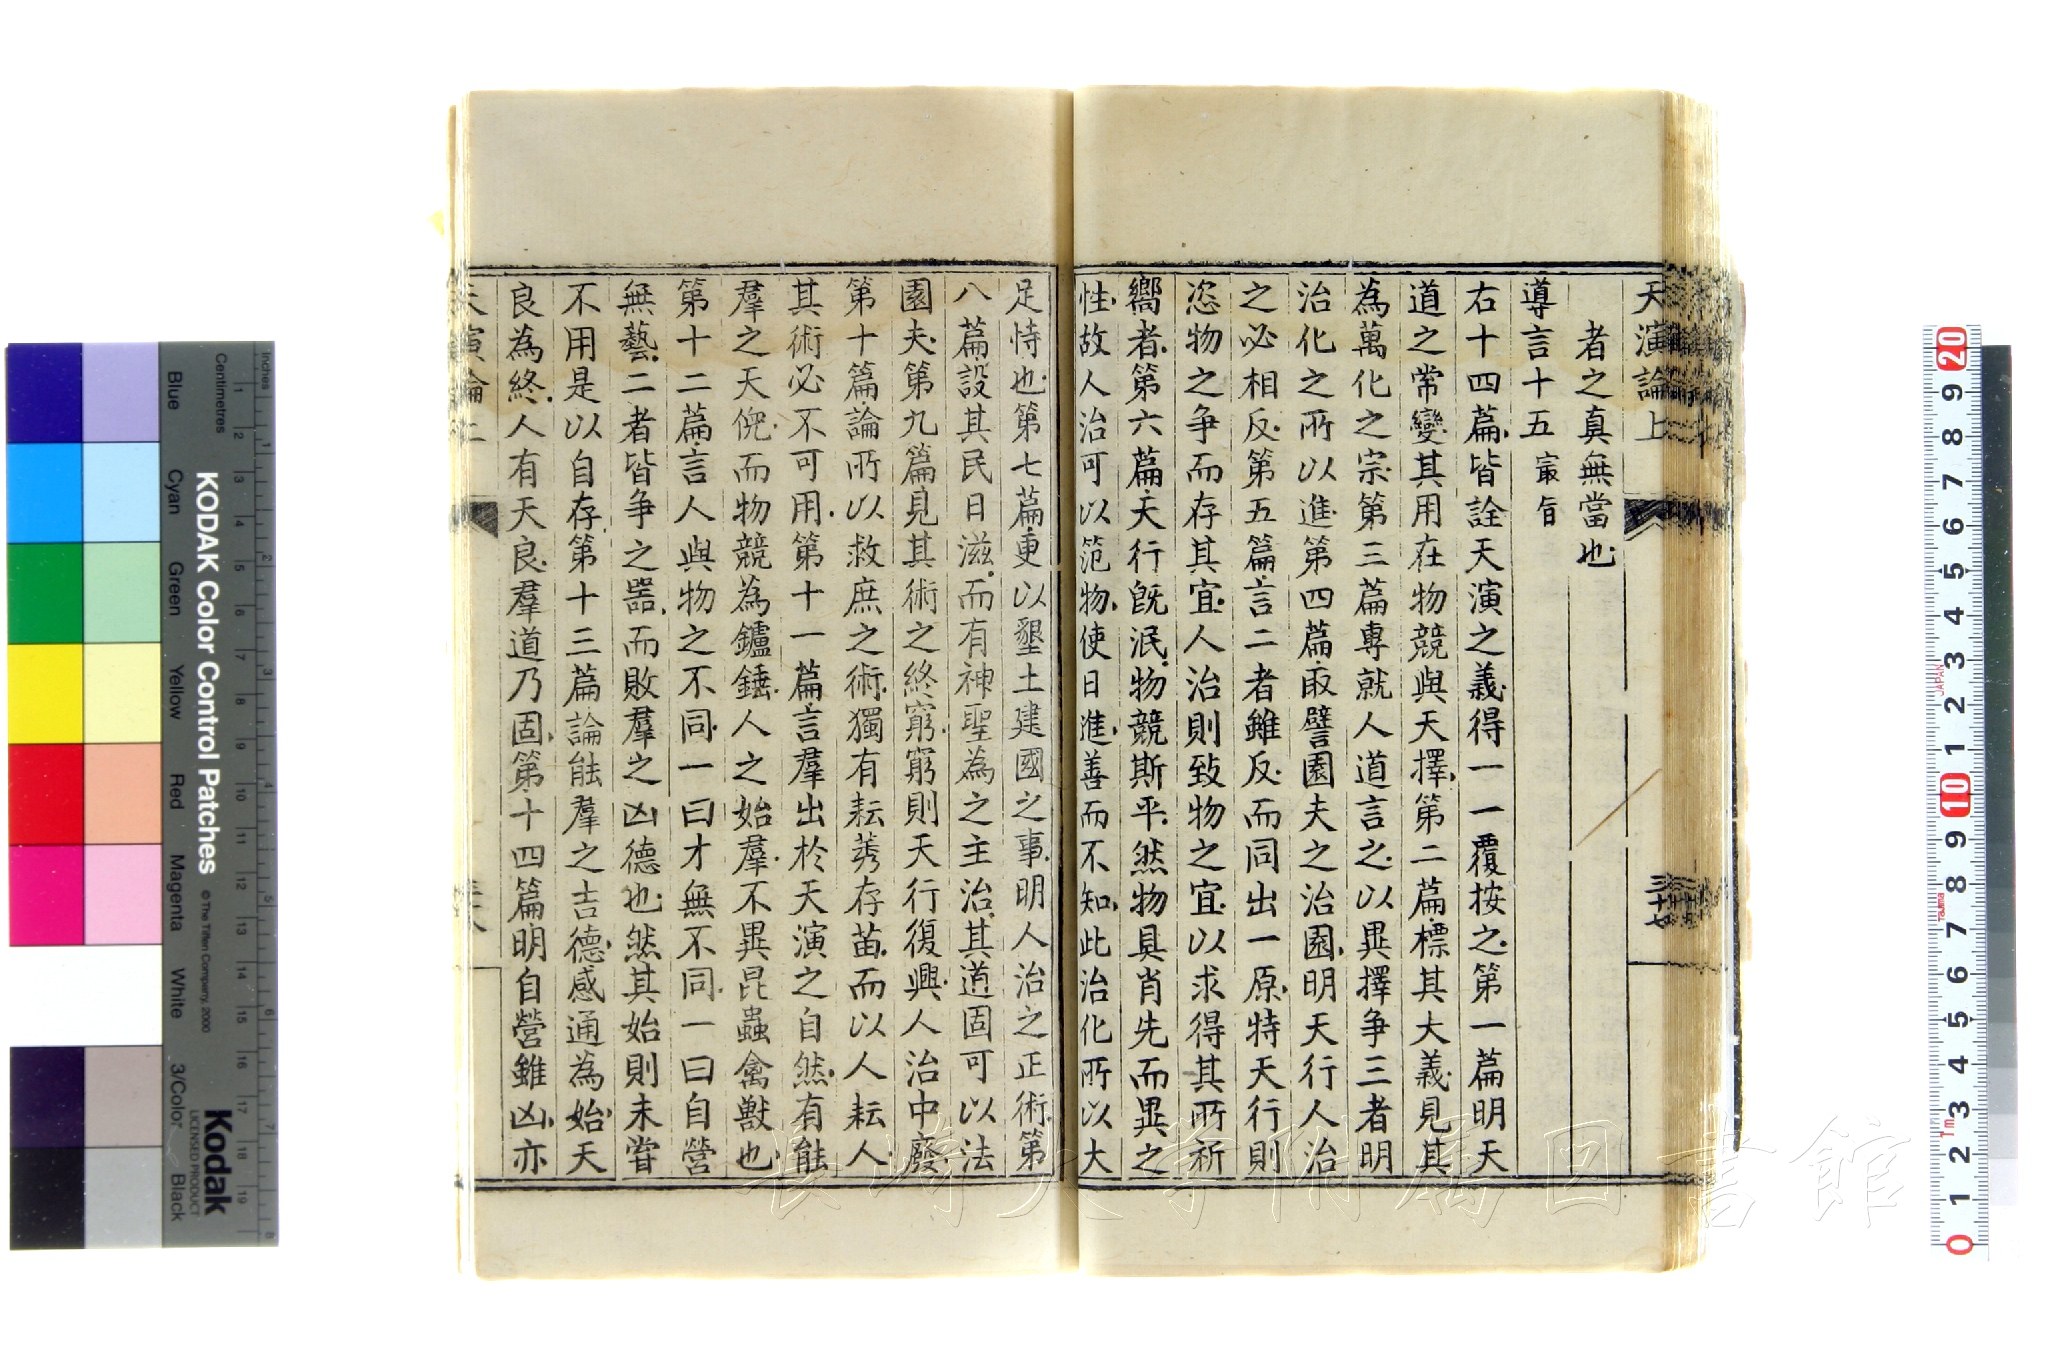 天演論上
三十七
者之真無當也
導言十五 㝡旨
右十四篇皆詮天演之義得一一覆按之第一篇明天
道之常變其用在物競與天擇第二篇標其大義見其
為萬化之宗第三篇專就人道言之以異擇爭三者明
治化之所以進第四篇取譬園夫之治園明天行人治
之必相反第五篇言二者雖反而同出一原特天行則
恣物之争而存其宜人治則致物之宜以求得其所祈
嚮者第六篇天行既泯物競斯平然物具肖先而異之
性故人治可以范物使日進善而不知此治化所以大
足恃也第七篇更以墾土建國之事明人治之正術第
八篇設其民日滋而有神聖為之主治其道固可以法
園夫第九篇見其術之終窮窮則天行復興人治中廢
第十篇論所以救庶之術獨有耘莠存苗而以人耘人
其術必不可用第十一篇言羣出於天演之自然有能
羣之天倪而物競為鑪錘人之始羣不異昆蟲禽獸也
第十二篇言人與物之不同一曰才無不同一曰自營
無藝二者皆争之器而敗羣之凶德也然其始則未嘗
不用是以自存第十三篇論能羣之吉德感通為始天
良為終人有天良羣道乃固第十四篇明自營雖凶亦
天演論上
KODAK Color Control Patches
© The Tiffen Company, 2000
Kodak
LICENSED PRODUCT
Inches
Centimetres
Blue
Cyan
Green
Yellow
Red
Magenta
White
3/Color
Black
長崎大学附属図書館
JAPAN
Tajima